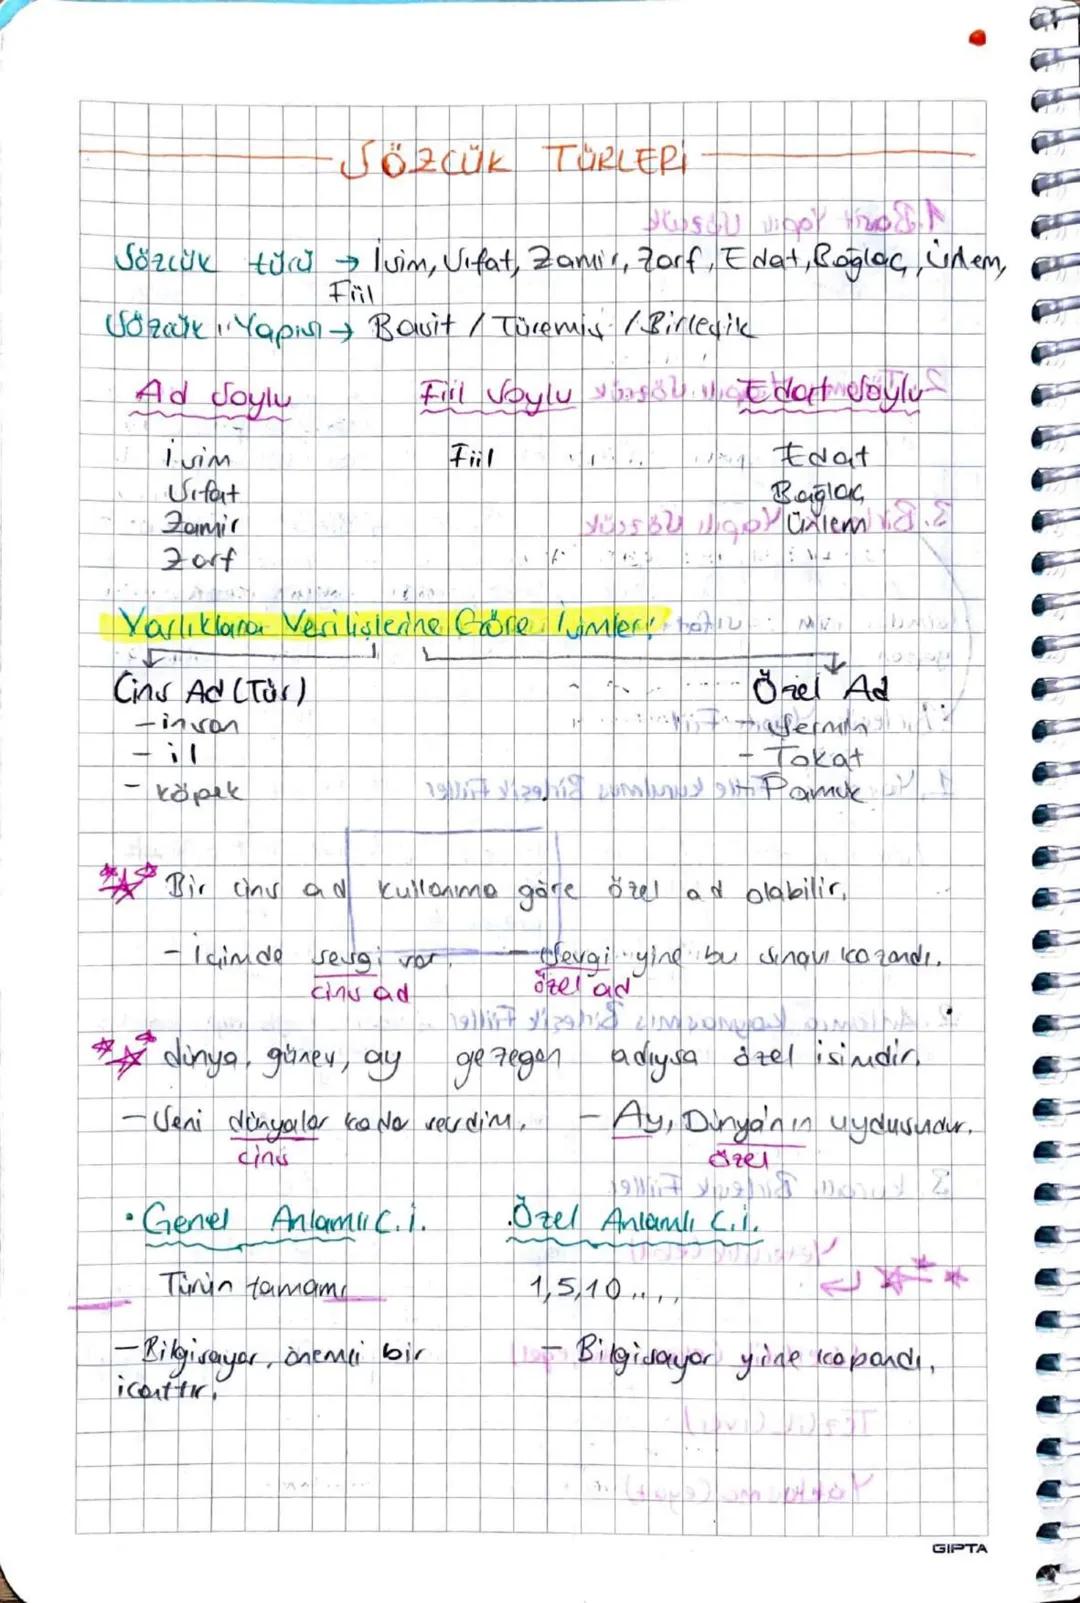 SÖZCÜK TÜRLERİ
Sözcük türü → İsim, Sıfat, Zamir, Zarf, Edat, Bağlaç, Ünlem,
Fiil
Sözcük Yapısı → Basit / Türemiş / Birleşik
Ad Soylu Fiil Soylu Edat Soylu
İsim Fiil Edat
Sıfat Bağlaç
Zamir Ünlem
Zarf
Varlıklara Verilişlerine Göre İsimler:
Cins Ad (Tür) Özel Ad
- insan - Sermin
- il - Tokat
- köpek - Pamuk
Bir cins ad kullanıma göre özel ad olabilir.
- İçimde sevgi var. - Sevgi yine bu sınavı kazandı.
cins ad özel ad
dünya, güneş, ay gezegen adıysa özel isimdir.
- Seni dünyalar kadar sevdim. - Ay, Dünya'nın uydusudur.
cins özel
• Genel Anlamlı C. İ. . Özel Anlamlı C. İ.
Türün tamamı 1, 5, 10 .....
- Bilgisayar, önemli bir - Bilgisayar yine kapandı.
icattır.
GIPTA